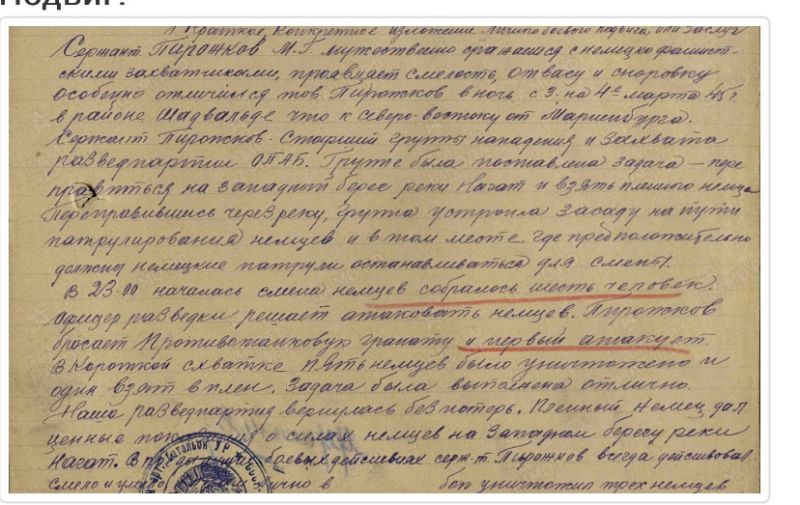 Подвиг:
1. Краткое, конкретное изложение личного боевого подвига или заслуг
Сержант Пирожков М.Г. мужественно сражается с немецко фашист-
скими захватчиками, проявляет смелость, отвагу и сноровку
особенно отличился тов. Пирожков в ночь с 3. на 4е марта 45 г.
в районе Шадвальде что к северо-востоку от Мариенбурга.
Сержант Пирожков - Старший группы нападения и захвата
разведпартии ОПАБ. Группе была поставлена задача — пере
правиться на западный берег реки Нагат и взять пленного немца
Переправившись через реку, группа устроила засаду на пути
патрулирования немцев и в том месте, где предположительно
должны немецкие патрули останавливаться для смены.
В 23.00 началась смена немцев собралось шесть человек.
Офицер разведки решает атаковать немцев. Пирожков
бросает Противотанковую гранату и первый атакует.
В Короткой схватке пять немцев было уничтожено и
один взят в плен. Задача была выполнена отлично.
Наша разведпартия вернулась без потерь. Пленный немец дал
ценные о силах немцев на Западном берегу реки
Нагат. В боевых действиях серж-т Пирожков всегда действовал
смело и в бою уничтожил трех немцев